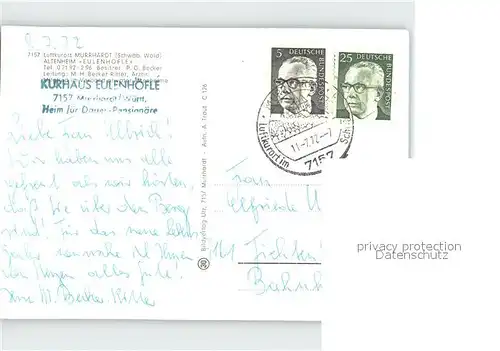 8.7.72
7157 Luftkurort MURRHARDT (Schwäb. Wald)
ALTENHEIM »EULENHÖFLE«
Tel. 07192-296 Besitzer: P.O. Becker
Leitung: M.H. Becker-Ritter, Ärztin
KURHAUS EULENHÖFLE
7157 Murrhardt/Württ.
Heim für Dauer-Pensionäre
Liebe Frau Ullrich!
Wir haben uns alle
gefreut als wir hörten,
daß Sie über den Berg
sind! Für das neue Lebens-
jahr wünsche ich Ihnen
von Herzen alles Gute!
Ihre M. Becker-Ritter
Bildverlag Utz, 7157 Murrhardt · Aufn. A. Traut C 126
5
25
DEUTSCHE BUNDESPOST
Luftkurort im
11.-7.72.-7
7157
Frau
Elfriede
Bahnh
privacy protection
Datenschutz